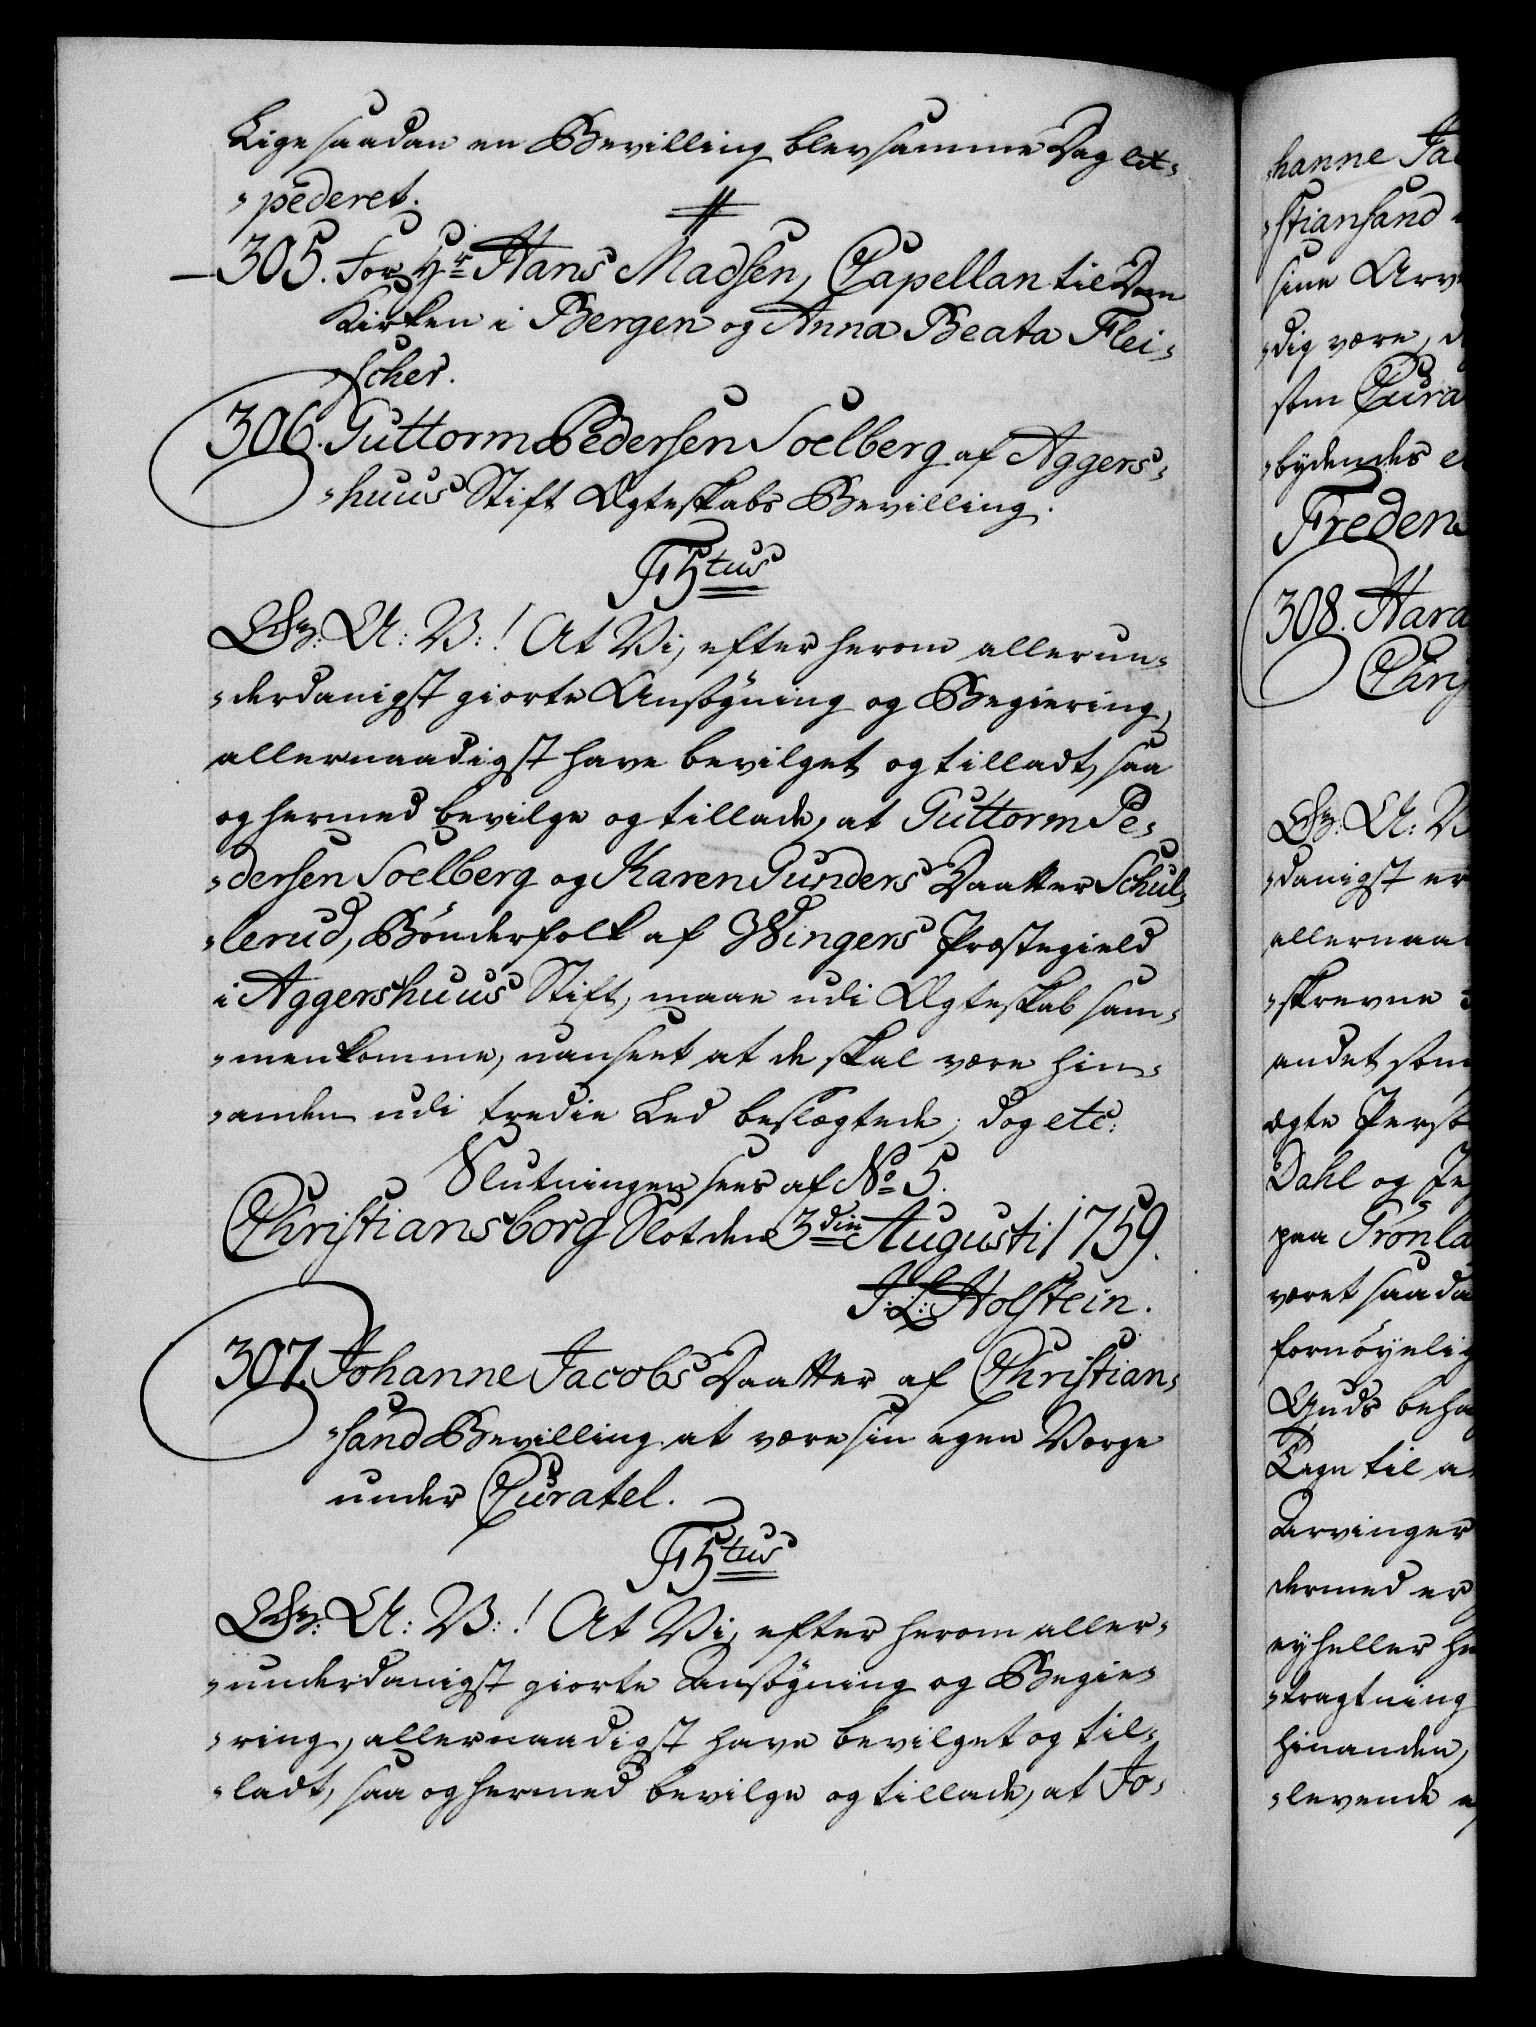 Lige saadan en Bevilling blev samme Dag ex-
-pederet.
305. For Hr Hans Madsen, Capellan til Dom
Kirken i Bergen og Anna Beata Flei-
scher.
306. Guttorm Pedersen Soelberg af Aggers-
-huus Stift Ægteskabs Bevilling.
F5tus
G: A: V:! At Vi, efter herom allerun-
-derdanigst giorte Ansøgning og Begiering,
allernaadigst have bevilget og tilladt, saa
og hermed bevilge og tillade, at Guttorm Pe-
-dersen Soelberg og Karen Gunders Daatter Schul-
-lerud, Bønderfolk af Wingers Præstegield
i Aggershuus Stift, maae udi Ægteskab sam-
-menkomme, uanseet at de skal være hin-
-anden udi tredie Led beslægtede; dog etc:
Slutningen sees af No 5.
Christiansborg Slot den 3die Augusti 1759.
J: L: Holstein.
307. Johanne Jacobs Daatter af Christian-
-sand Bevilling at være sin egen Værge
under Curatel.
F5tus
G: A: V:! At Vi, efter herom aller-
-underdanigst giorte Ansøgning og Begie-
-ring, allernaadigst have bevilget og til-
-ladt, saa og hermed bevilge og tillade, at Jo-
-hanne Jac
-stiansand
sine Arv
-dig være, d
som Cura
-bydendes e
Fredens
308. Hara
Chri
G: A: V
-danigst er
allernaa
-skrevne
andet som
ægte Perso
Dahl og Je
paa Grønla
været saada
fornøyelig
Guds beha
Legn til a
Arvinger
dermed er
ey heller he
-tragtning
hinanden,
-levende e